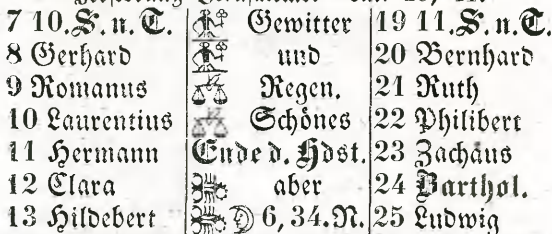 7 10. S. n. T. Gewitter 19 11. S. n. T.
8 Gerhard und 20 Bernhard
9 Romanus Regen. 21 Ruth
10 Laurentius Schönes 22 Philibert
11 Hermann Ende d. Hdst. 23 Zachäus
12 Clara aber 24 Barthol.
13 Hildebert 6, 34. N. 25 Ludwig